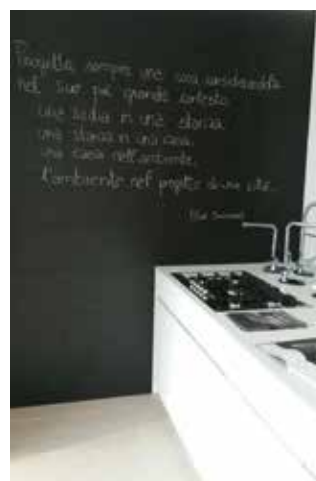 Progetta sempre una cosa considerandola
nel suo più grande contesto
una sedia in una stanza
una stanza in una casa
una casa nell'ambiente,
l'ambiente nel progetto di una città.